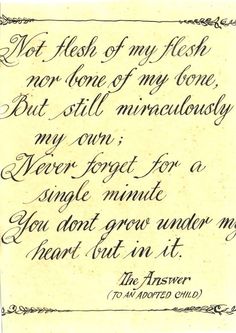 Not flesh of my flesh
nor bone of my bone,
But still miraculously
my own;
Never forget for a
single minute
You dont grow under my
heart but in it.
The Answer
(TO AN ADOPTED CHILD)